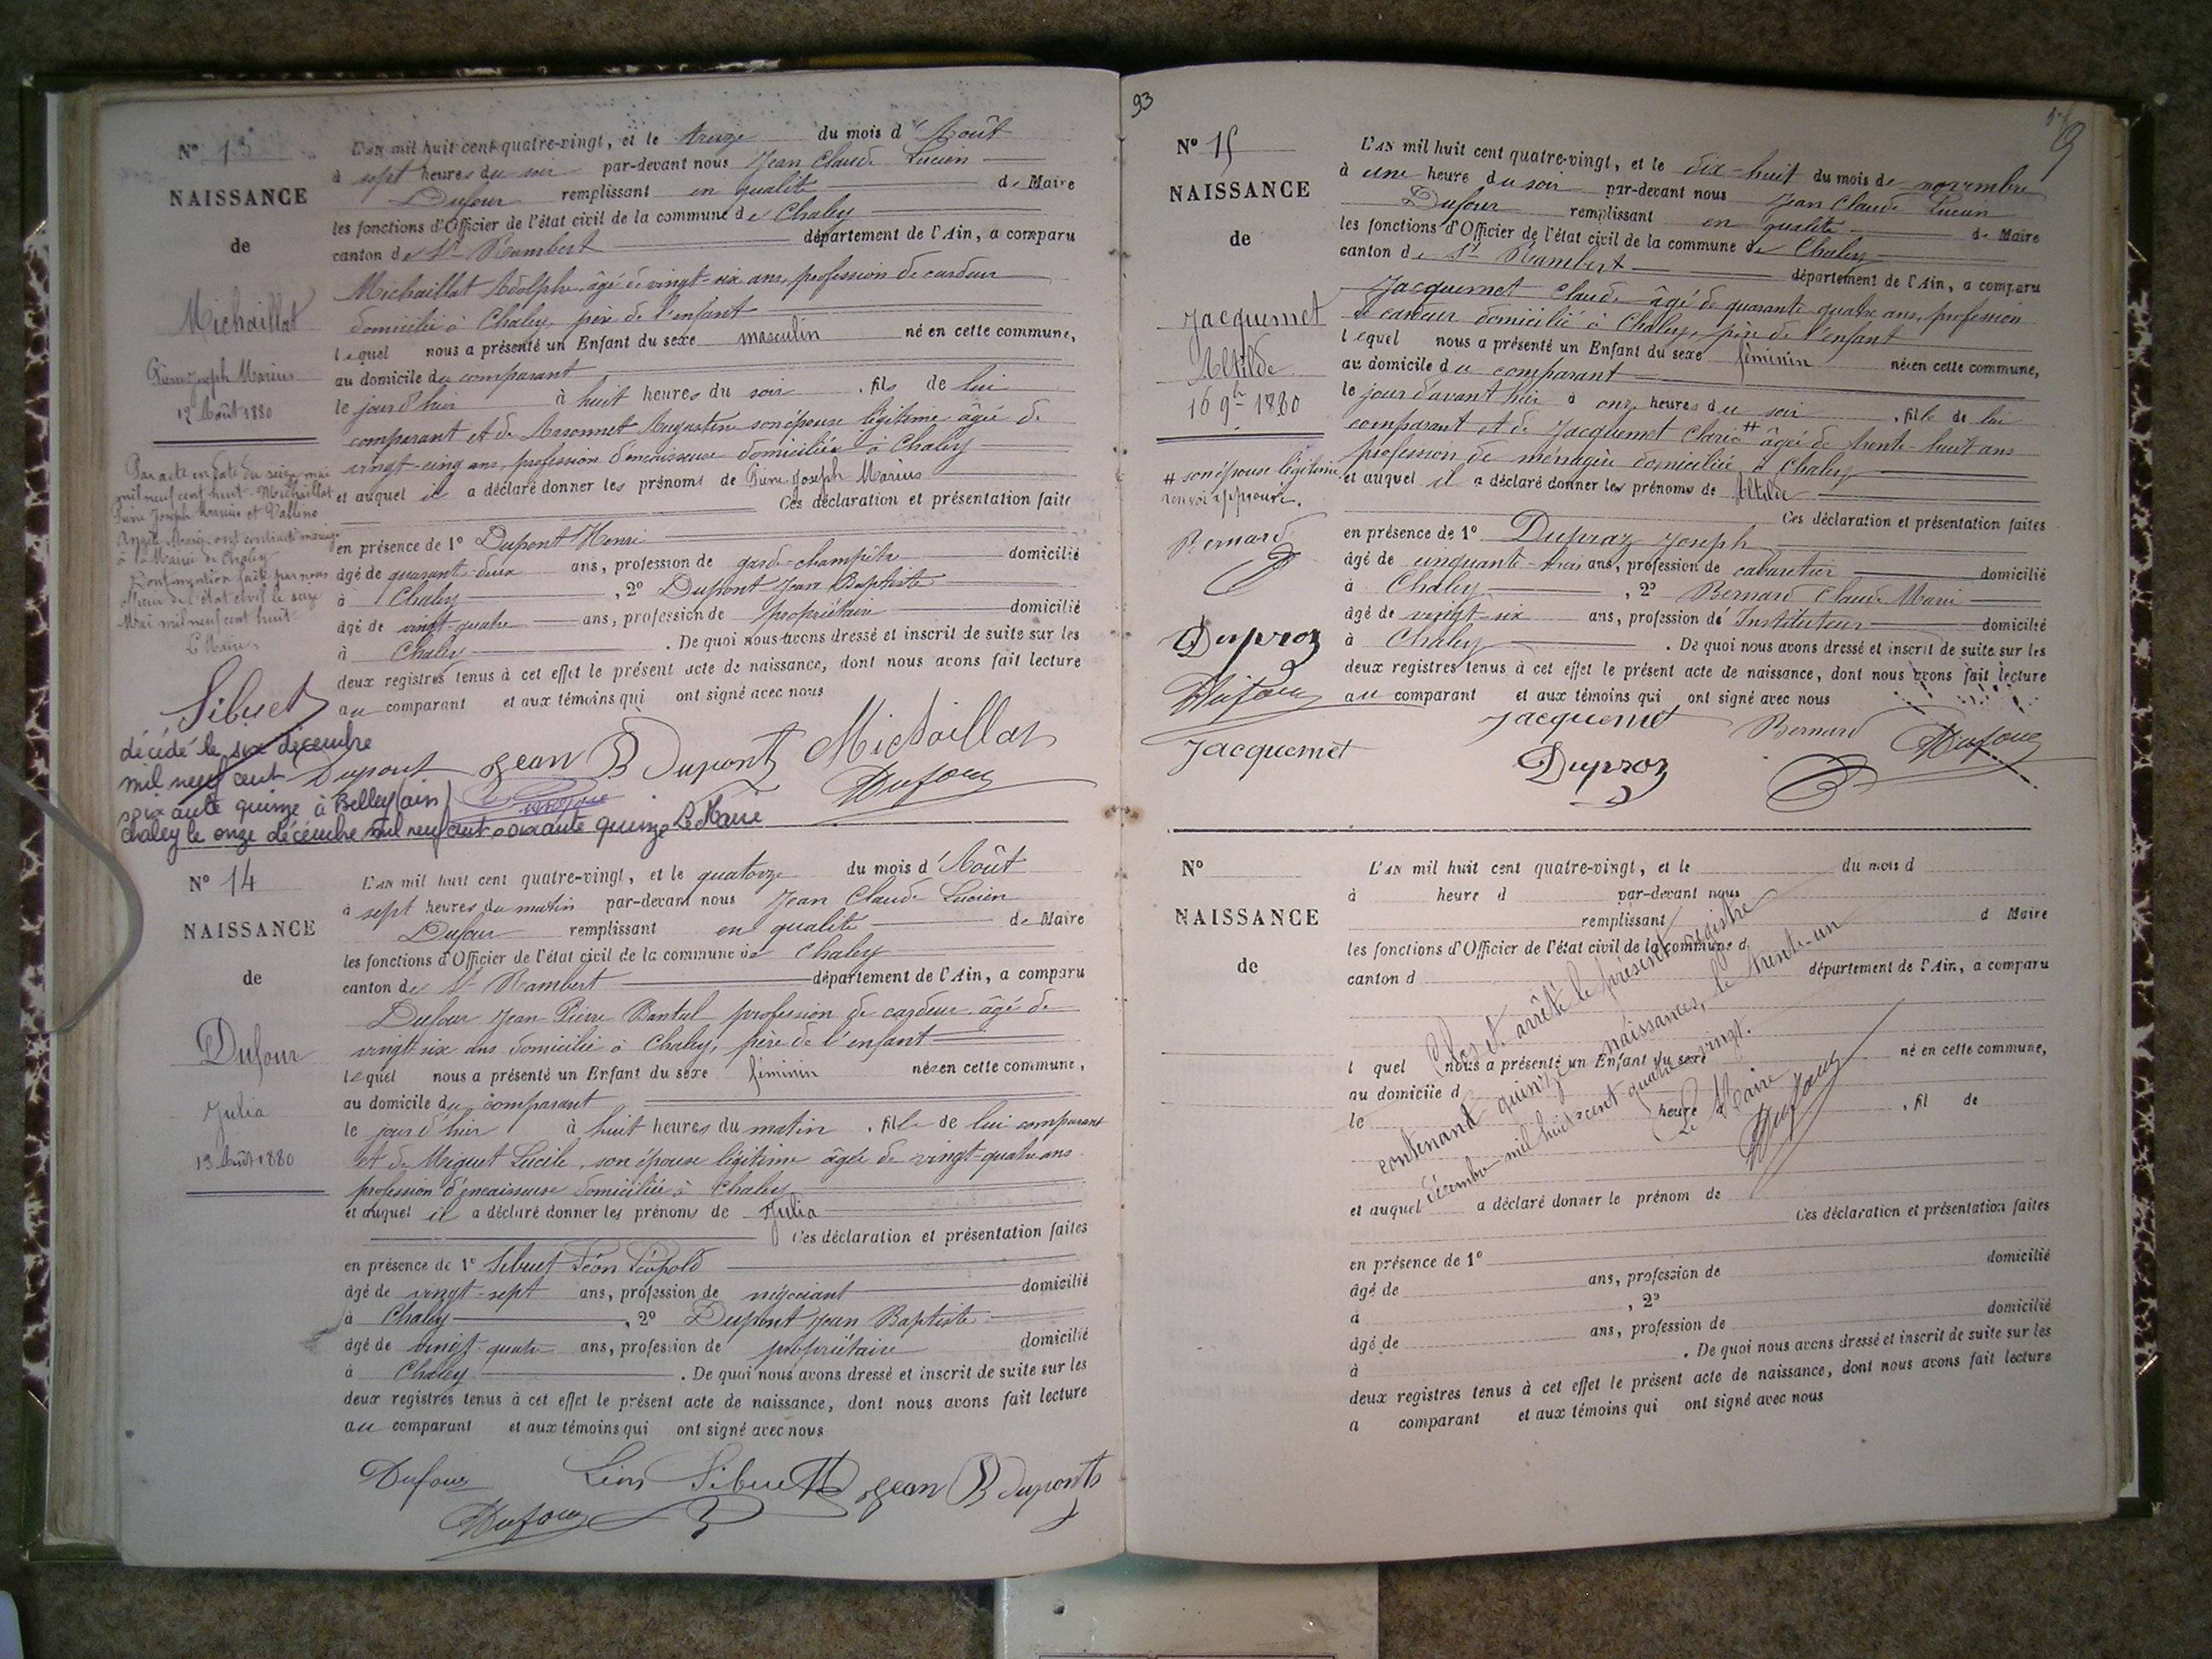 N° 13
NAISSANCE
de
Michaillat
Pierre Joseph Marius
12 Août 1880
Par acte en date du seize mai
mil neuf cent huit Michaillat
Pierre Joseph Marius et Vallino
Angèle Marie ont contracté mariage
à la Mairie de Chaley
faite par nous
officier de l'état civil le seize
Mai mil neuf cent huit.
Le Maire,
Sibuet
décédé le six décembre
mil neuf cent
soixante quinze à Belley (ain)
Chaley le onze décembre mil neuf cent soixante quinze Le Maire
L'AN mil huit cent quatre-vingt, et le treize du mois d'Août
à sept heures du soir par-devant nous Jean Claude Lucien
Dufour remplissant en qualité de Maire
les fonctions d'Officier de l'état civil de la commune de Chaley
canton de St Rambert département de l'Ain, a comparu
Michaillat Adolphe âgé de vingt-six ans, profession de cardeur
domicilié à Chaley, père de l'enfant
lequel nous a présenté un Enfant du sexe masculin né en cette commune,
au domicile du comparant
le jour d'hier à huit heures du soir, fils de lui
comparant et de Augustine son épouse légitime âgée de
vingt-cinq ans, profession d'encaisseuse domiciliée à Chaley
et auquel il a déclaré donner les prénoms de Pierre Joseph Marius
Ces déclaration et présentation faites
en présence de 1° Dupont Henri
âgé de quarante-deux ans, profession de garde-champêtre domicilié
à Chaley, 2° Dupont Jean Baptiste
âgé de vingt-quatre ans, profession de propriétaire domicilié
à Chaley. De quoi nous avons dressé et inscrit de suite sur les
deux registres tenus à cet effet le présent acte de naissance, dont nous avons fait lecture
au comparant et aux témoins qui ont signé avec nous
Dupont Jean B Dupont Michaillat
Dufour
N° 14
NAISSANCE
de
Dufour
Julia
13 Août 1880
L'AN mil huit cent quatre-vingt, et le quatorze du mois d'Août
à sept heures du matin par-devant nous Jean Claude Lucien
Dufour remplissant en qualité de Maire
les fonctions d'Officier de l'état civil de la commune de Chaley
canton de St Rambert département de l'Ain, a comparu
Dufour Jean-Pierre profession de cardeur âgé de
vingt six ans domicilié à Chaley, père de l'enfant
lequel nous a présenté un Enfant du sexe féminin née en cette commune,
au domicile du comparant
le jour d'hier à huit heures du matin, fille de lui comparant
et de Lucile, son épouse légitime âgée de vingt-quatre ans
profession d'encaisseuse domiciliée à Chaley
et auquel il a déclaré donner les prénoms de Julia
Ces déclaration et présentation faites
en présence de 1° Sibuet Léon Léopold
âgé de vingt-sept ans, profession de négociant domicilié
à Chaley, 2° Dupont Jean Baptiste
âgé de vingt-quatre ans, profession de propriétaire domicilié
à Chaley. De quoi nous avons dressé et inscrit de suite sur les
deux registres tenus à cet effet le présent acte de naissance, dont nous avons fait lecture
au comparant et aux témoins qui ont signé avec nous
Dufour Léon Sibuet Jean B Dupont
Dufour
93
N° 15
NAISSANCE
de
Jacquemet
Altilde
16 9bre 1880
# son épouse légitime
renvoi approuvé.
Bernard
Duproz
Dufour
Jacquemet
L'AN mil huit cent quatre-vingt, et le dix-huit du mois de novembre
à une heure du soir par-devant nous Jean Claude Lucien
Dufour remplissant en qualité de Maire
les fonctions d'Officier de l'état civil de la commune de Chaley
canton de St Rambert département de l'Ain, a comparu
Jacquemet Claude âgé de quarante quatre ans, profession
de cardeur domicilié à Chaley, père de l'enfant
lequel nous a présenté un Enfant du sexe féminin née en cette commune,
au domicile du comparant
le jour d'avant hier à onze heures du soir, fille de lui
comparant et de Jacquemet Clarie # âgée de trente-huit ans
profession de ménagère domiciliée à Chaley
et auquel il a déclaré donner les prénoms de Altilde
Ces déclaration et présentation faites
en présence de 1° Dupraz Joseph
âgé de cinquante-trois ans, profession de cabaretier domicilié
à Chaley, 2° Bernard Claude Marie
âgé de vingt-six ans, profession d'Instituteur domicilié
à Chaley. De quoi nous avons dressé et inscrit de suite sur les
deux registres tenus à cet effet le présent acte de naissance, dont nous avons fait lecture
au comparant et aux témoins qui ont signé avec nous
Jacquemet Bernard Dufour
Duproz
N°
NAISSANCE
de
L'AN mil huit cent quatre-vingt, et le du mois d
à heure d par-devant nous
remplissant d Maire
les fonctions d'Officier de l'état civil de la commune d
canton d département de l'Ain, a comparu
l quel nous a présenté un Enfant du sexe né en cette commune,
au domicile d
le heure , fil de
et auquel a déclaré donner le prénom de
Ces déclaration et présentation faites
en présence de 1° domicilié
âgé de ans, profession de
à , 2° domicilié
âgé de ans, profession de
à . De quoi nous avons dressé et inscrit de suite sur les
deux registres tenus à cet effet le présent acte de naissance, dont nous avons fait lecture
a comparant et aux témoins qui ont signé avec nous
Clos et arrêté le présent registre
contenant quinze naissances, le trente-un
décembre mil huit cent quatre vingt.
Le Maire
Dufour